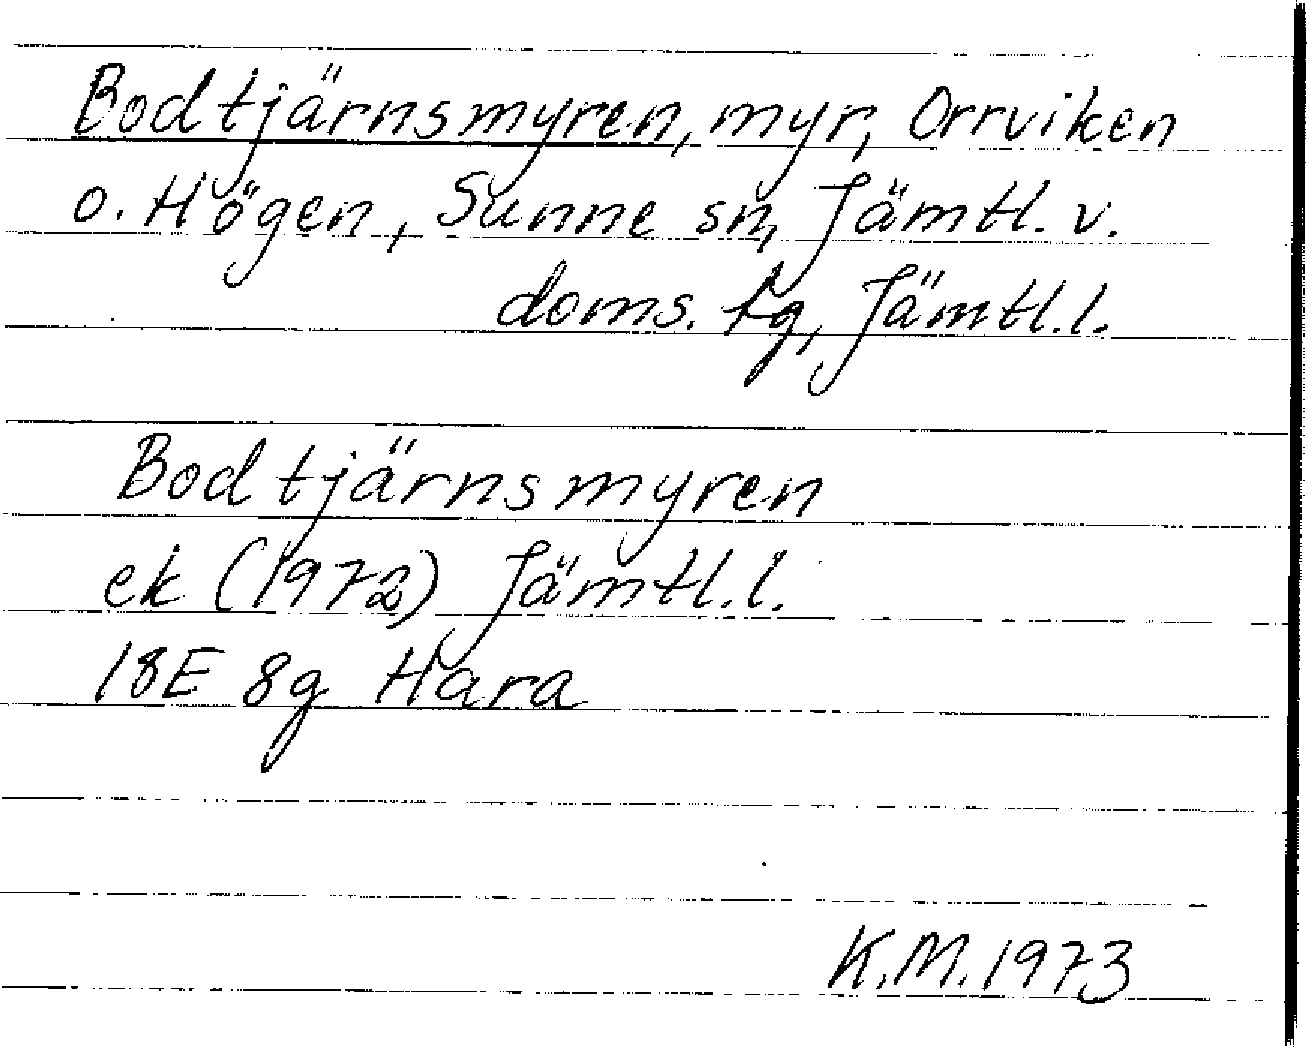 Bodtjärnsmyren, myr, Orrviken
o. Högen, Sunne sn, Jämtl. v.
doms. tg, Jämtl. l.
Bodtjärnsmyren
ek (1972) Jämtl. l.
18E 8g Hara
K.M. 1973